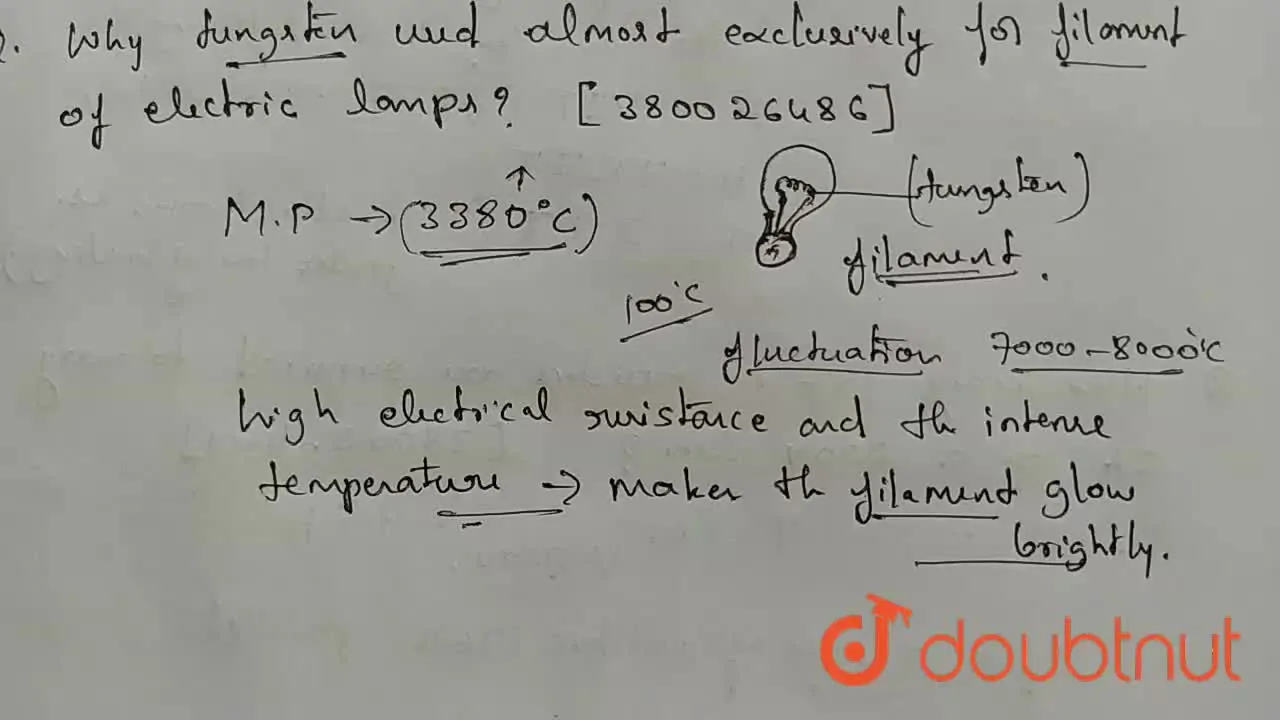 2. Why tungsten used almost exclusively for filament
of electric lamps? [380026486]
M.P → (3380°C)
(tungsten)
filament.
100°C
fluctuation 7000-8000°C
high electrical resistance and the intense
temperature → makes the filament glow
brightly.
doubtnut